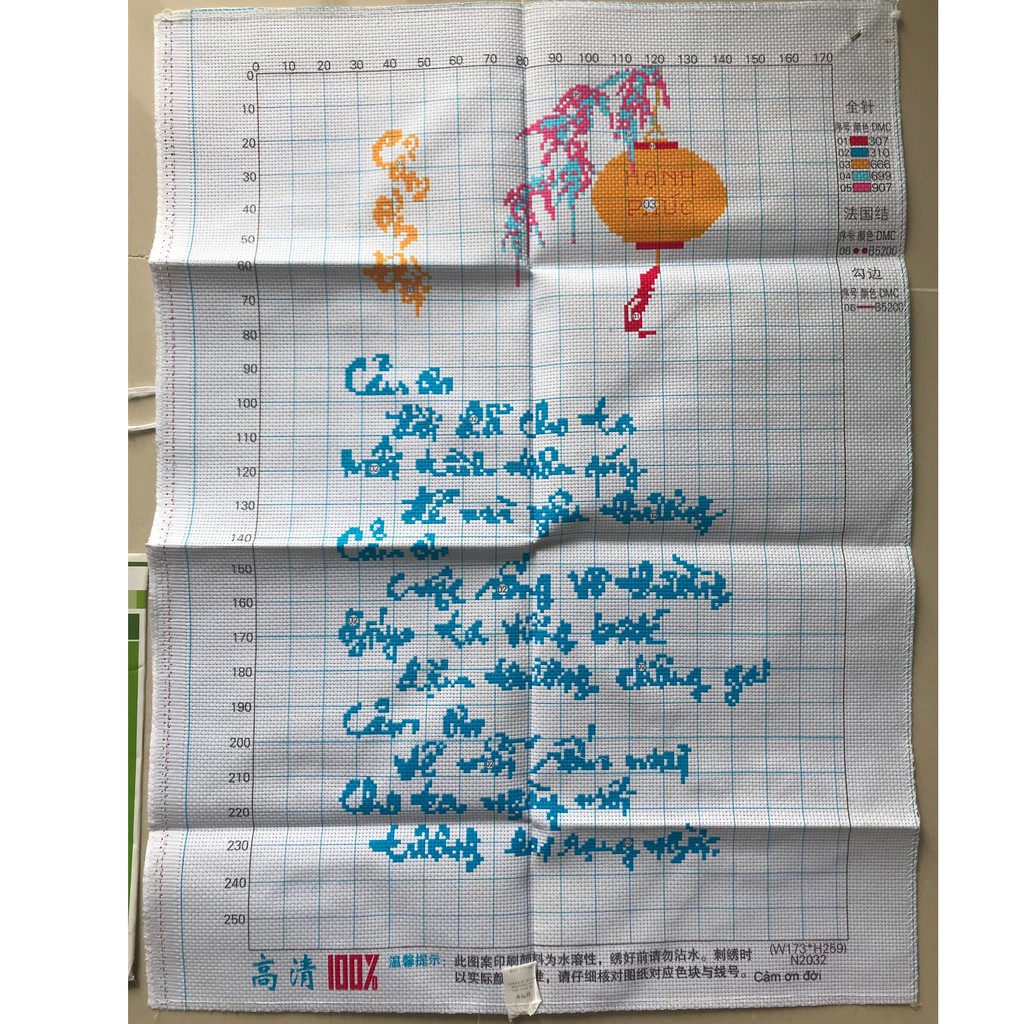 0 10 20 30 40 50 60 70 80 90 100 110 120 130 140 150 160 170
0
10
20
30
40
50
60
70
80
90
100
110
120
130
140
150
160
170
180
190
200
210
220
230
240
250
全针
序号 颜色 DMC
01 307
02 310
03 666
04 699
05 907
法国结
序号 颜色 DMC
06 B5200
勾边
序号 颜色 DMC
06 B5200
Cảm
ơn
đời
HẠNH
PHÚC
03
01
Cảm ơn
đất đã cho ta
một
để mà yêu thương
Cảm ơn
cuộc sống vô thường
Giúp ta từng bước
dặm trường chông gai
Cảm ơn
Cho ta
tương lai rạng ngời
高清 100%
温馨提示: 此图案印刷颜料为水溶性，绣好前请勿沾水。刺绣时
以实际颜 准，请仔细核对图纸对应色块与线号。
(W173*H259)
N2032
Cảm ơn đời